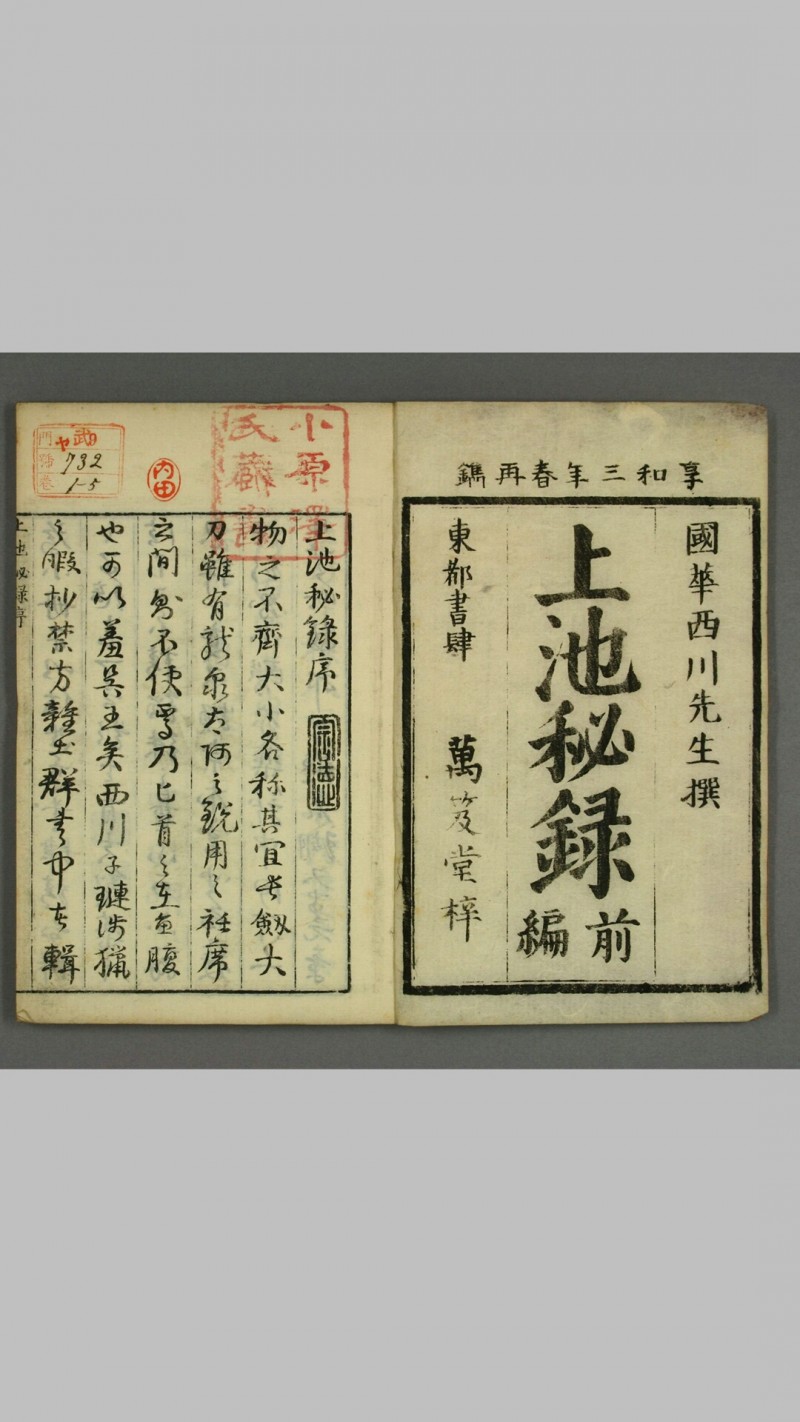 享和三年春再鐫
國華西川先生撰
上池秘録
前編
東都書肆 萬笈堂梓
上池秘錄序
物之不齊大小各称其宜長劔大
刀雖有龍泉太阿之鋭用之衽席
之間則不便焉乃匕首之在魚腹
也可以羞吳王矣西川子璉涉獵
之暇抄禁方雜出群書中者輯
上池秘録序
小原
氏藏
内田
732
1-5